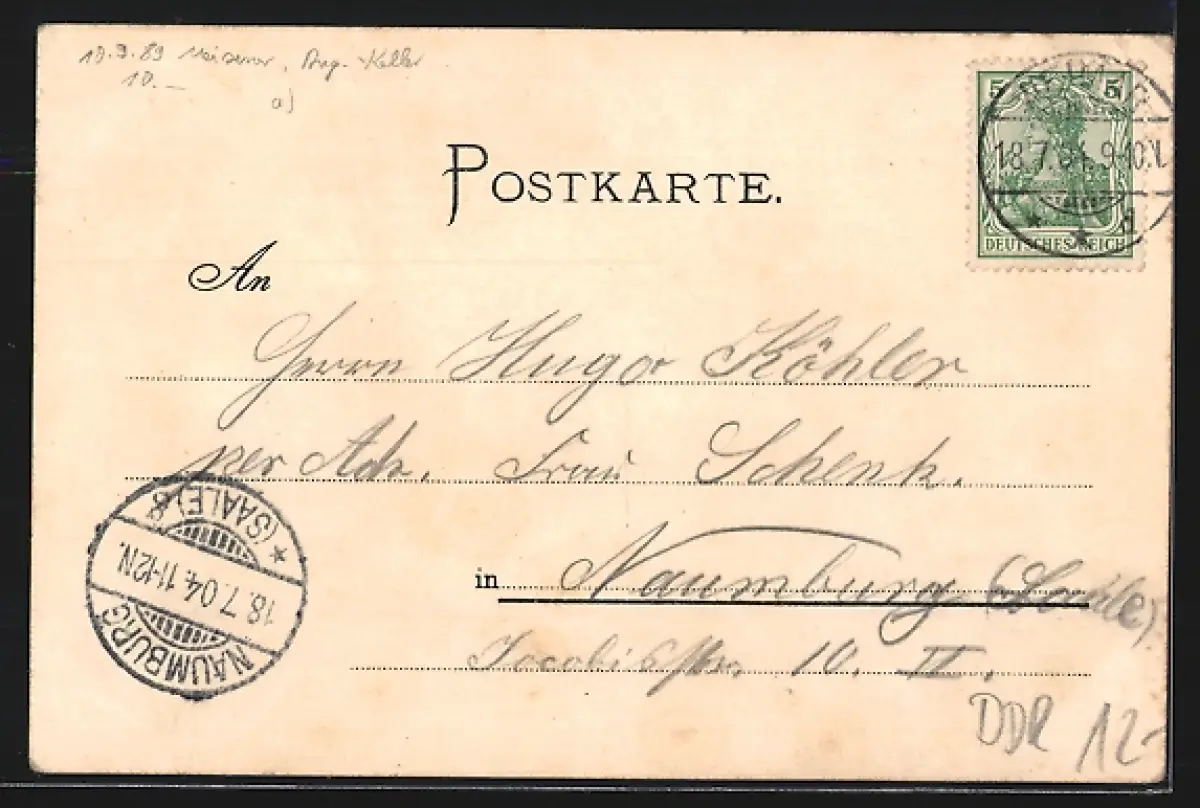 18.9.89 Meisener, Ang. Keller
10.—
a)
POSTKARTE.
5 5
18.7.04. 9-10.V.
* * d
DEUTSCHES REICH
An
Herrn Hugo Köhler
per Adr. Frau Schenk.
in Naumburg (Saale)
Jacobistr. 10. II.
NAUMBURG
18.7.04. 11-12N.
* (SAALE) *
DDR 12-